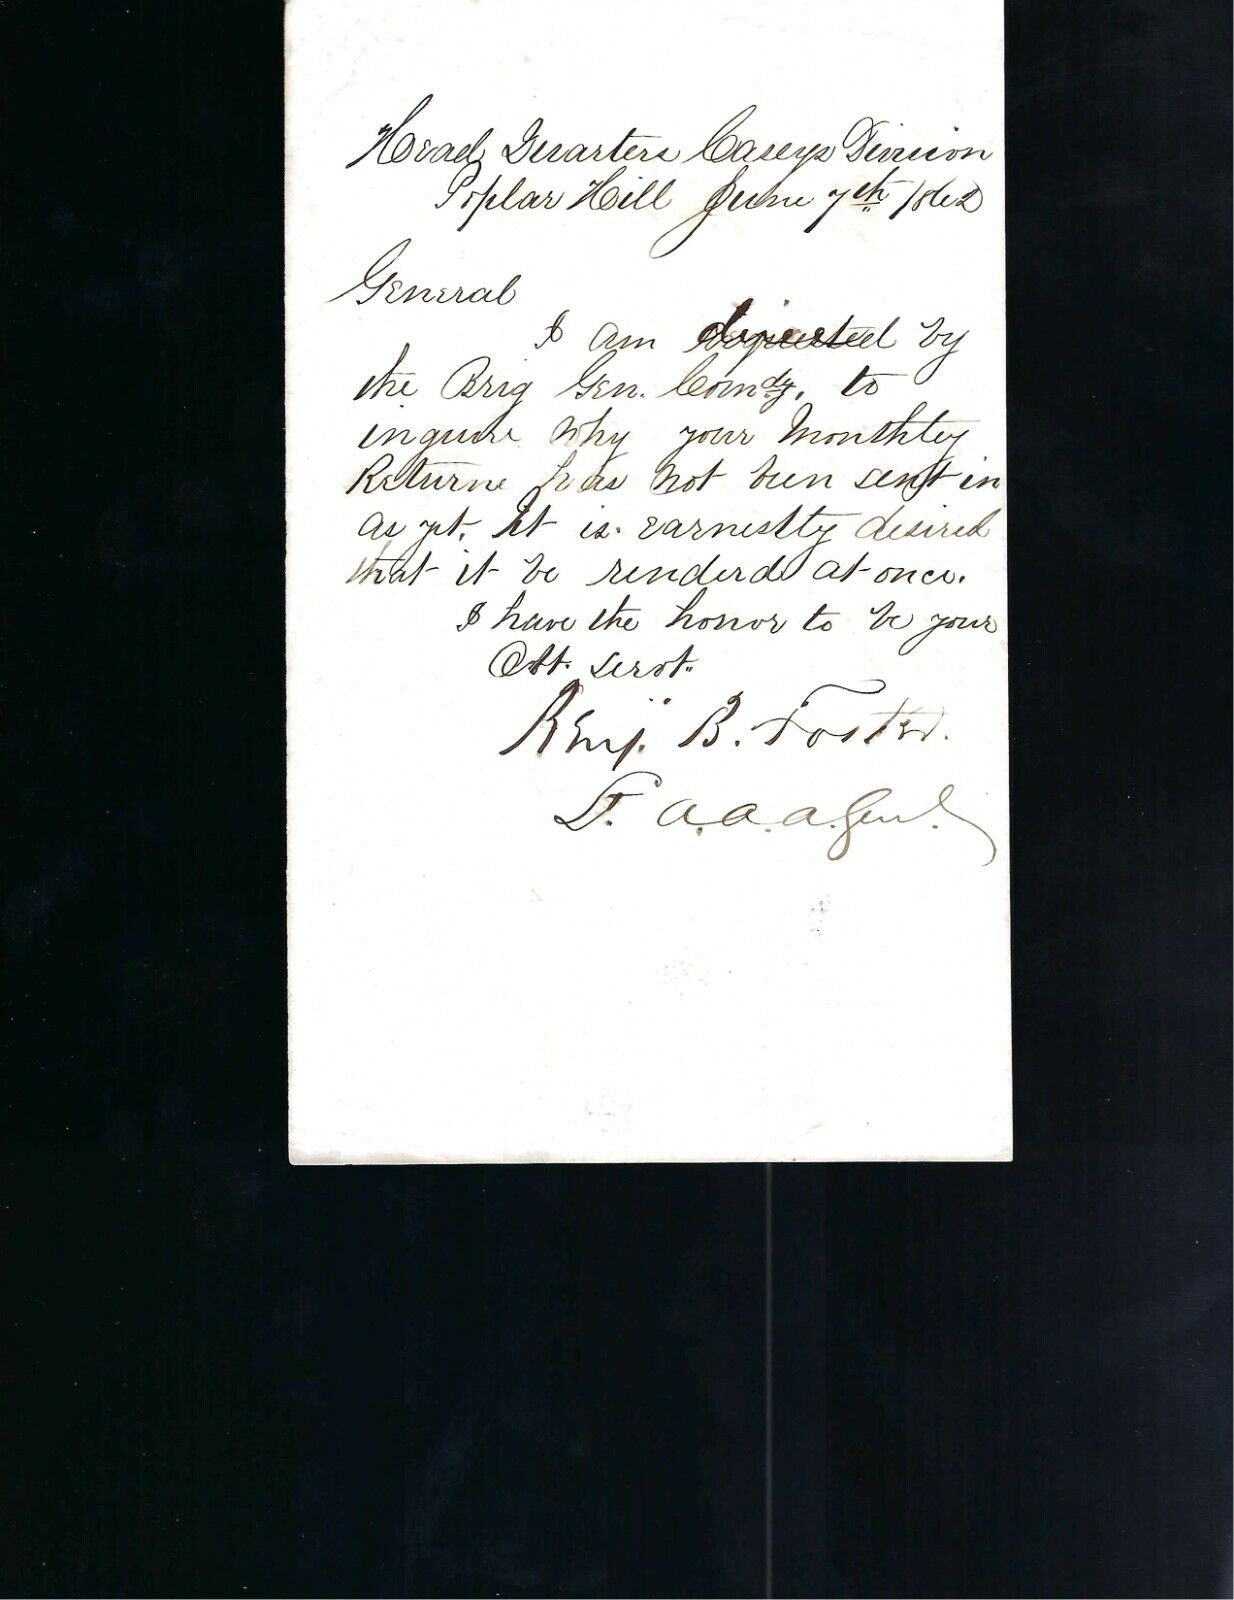 Head Quarters Caseys Division
Poplar Hill June 7th 1862
General
I am directed by
the Brig Gen. Comdg. to
inquire why your Monthly
Returne has not been sent in
as yet. It is earnestly desired
that it be renderd at once.
I have the honor to be your
Obt. servt.
Benj. B. Foster.
Lt. a.a.a. Genl.